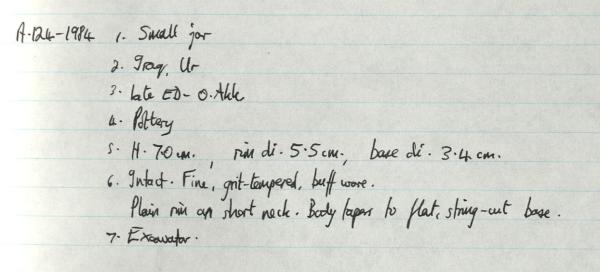 A.124-1984 1. Small jar
2. Iraq, Ur
3. Late ED - O.Akk
4. Pottery
5. H. 7.0 cm., rim di. 5.5 cm., base di. 3.4 cm.
6. Intact. Fine, grit-tempered, buff ware.
Plain rim on short neck. Body tapers to flat, string-cut base.
7. Excavator.